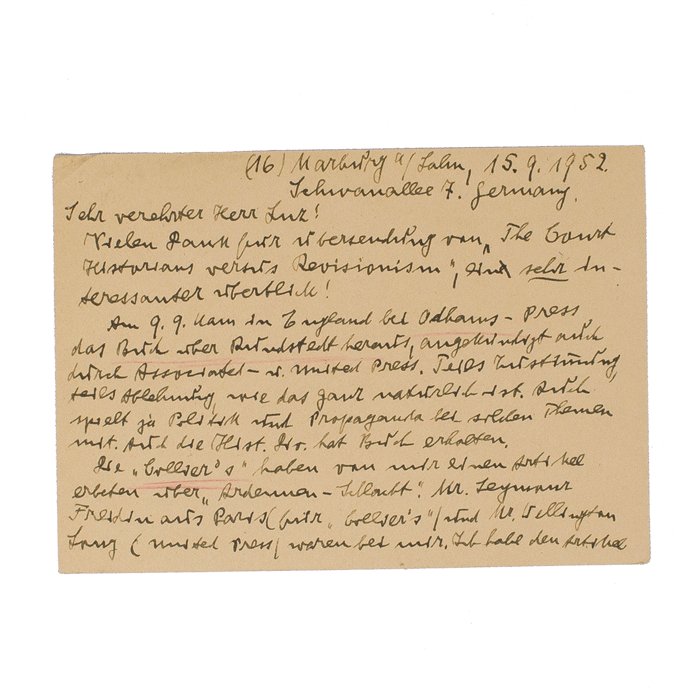 (16) Marburg a/Lahn, 15.9.1952.
Schwanallee 7. Germany.
Sehr verehrter Herr Luz!
Vielen Dank für Übersendung von „The Court
Historians versus Revisionism“, ein sehr in-
teressanter Überblick!
Am 9.9. kam in England bei Odhams-Press,
das Buch über Rundstedt heraus, angekündigt auch
durch Associated- u. United Press. Teils Zustimmung,
teils Ablehnung, wie das ganz natürlich ist. Auch
spielt ja Politik und Propaganda bei solchen Themen
mit. Auch die Hist. Div. hat Buch erhalten.
Die „Collier's“ haben von mir einen Artikel
erbeten über „Ardennen-Schlacht“. Mr. Seymour
Freidin aus Paris (für „Collier's“) und Mr. Wellington
Long (United Press) waren bei mir. Ich habe den Artikel